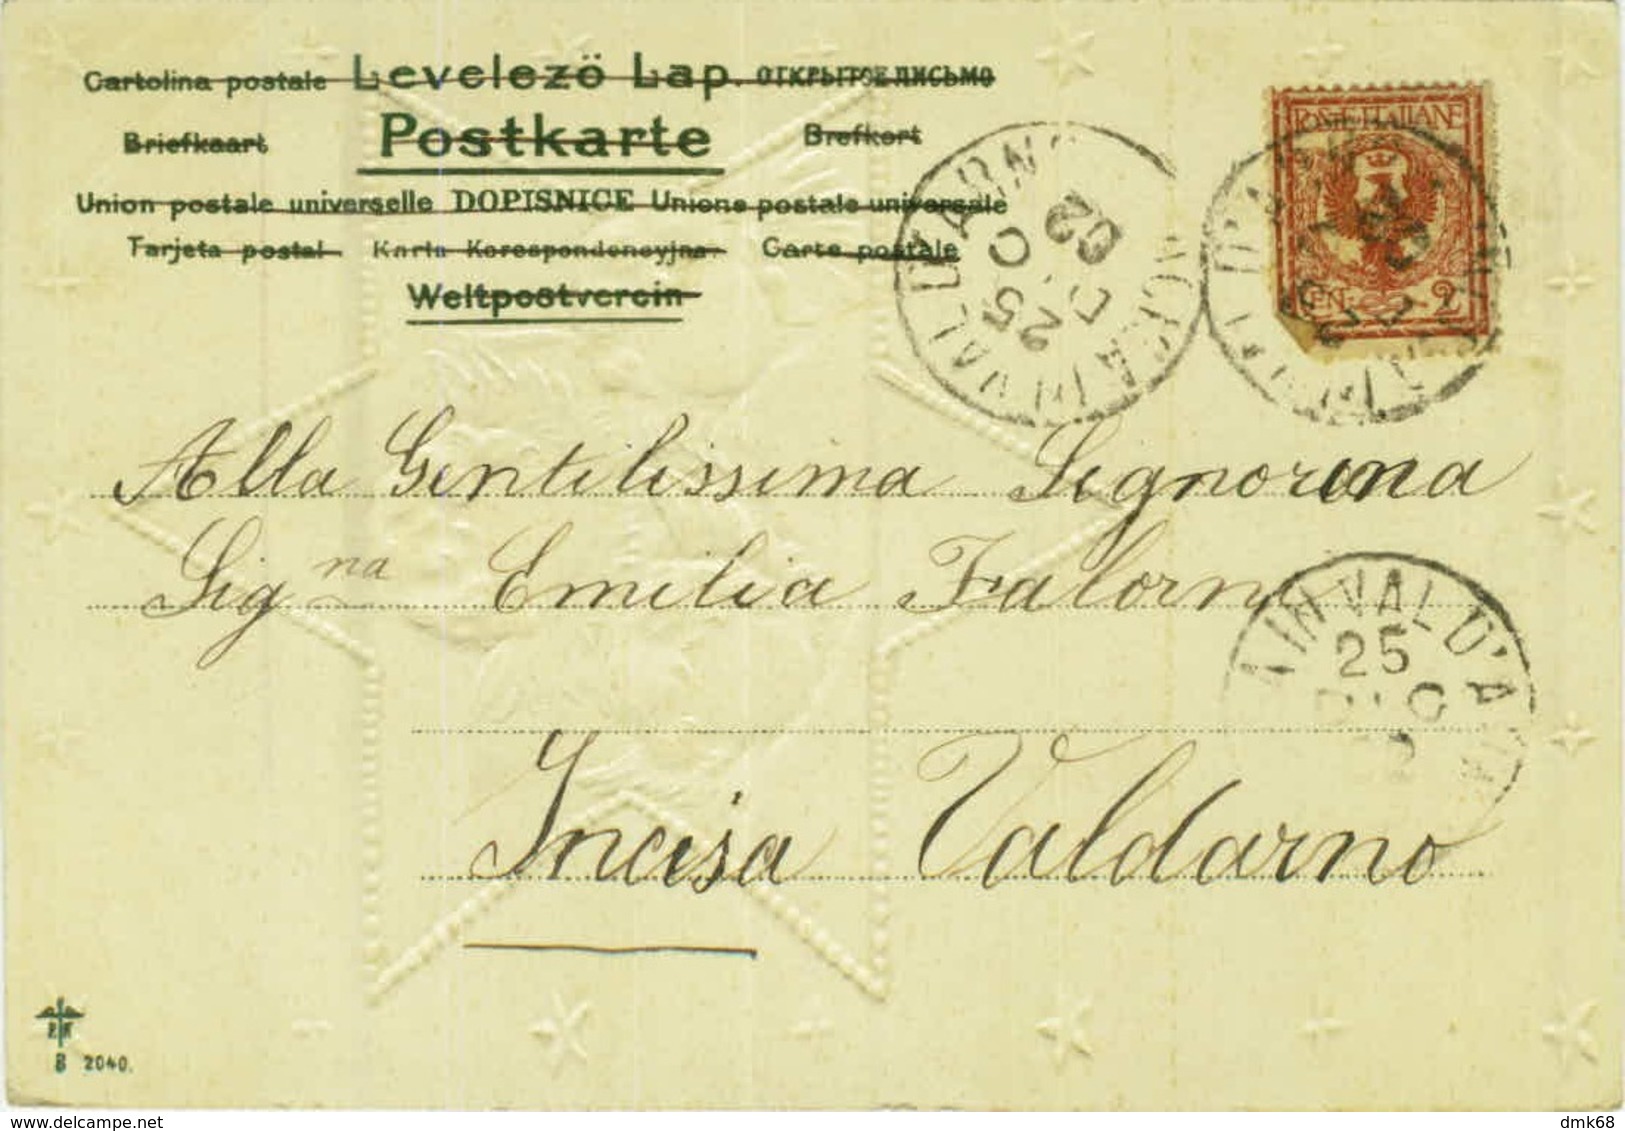 Cartolina postale Levelező Lap. ОТКРЫТОЕ ПИСЬМО
Briefkaart Postkarte Brefkort
Union postale universelle DOPISNICE Unione postale universale
Tarjeta postal Karta Korespondencyjna Carte postale
Weltpostverein
POSTE ITALIANE
CEN. 2
25
DIC
02
Alla Gentilissima Signorina
Sig.na Emilia Falorni
IN VAL D'AR
25
DIC
Incisa Valdarno
B 2040.
dmk68